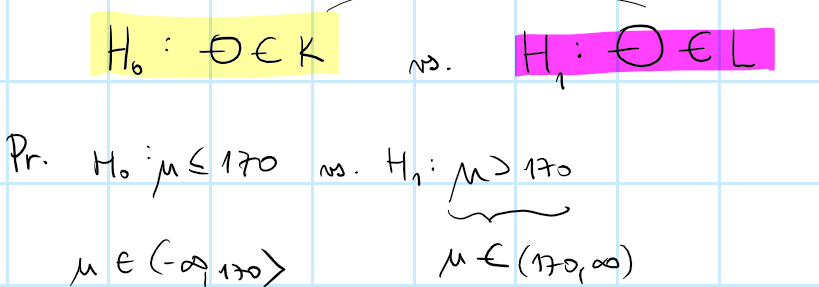 H₀ : Θ ∈ K vs. H₁ : Θ ∈ L
Pr. H₀ : μ ≤ 170 vs. H₁ : μ > 170
μ ∈ (-∞, 170> μ ∈ (170, ∞)